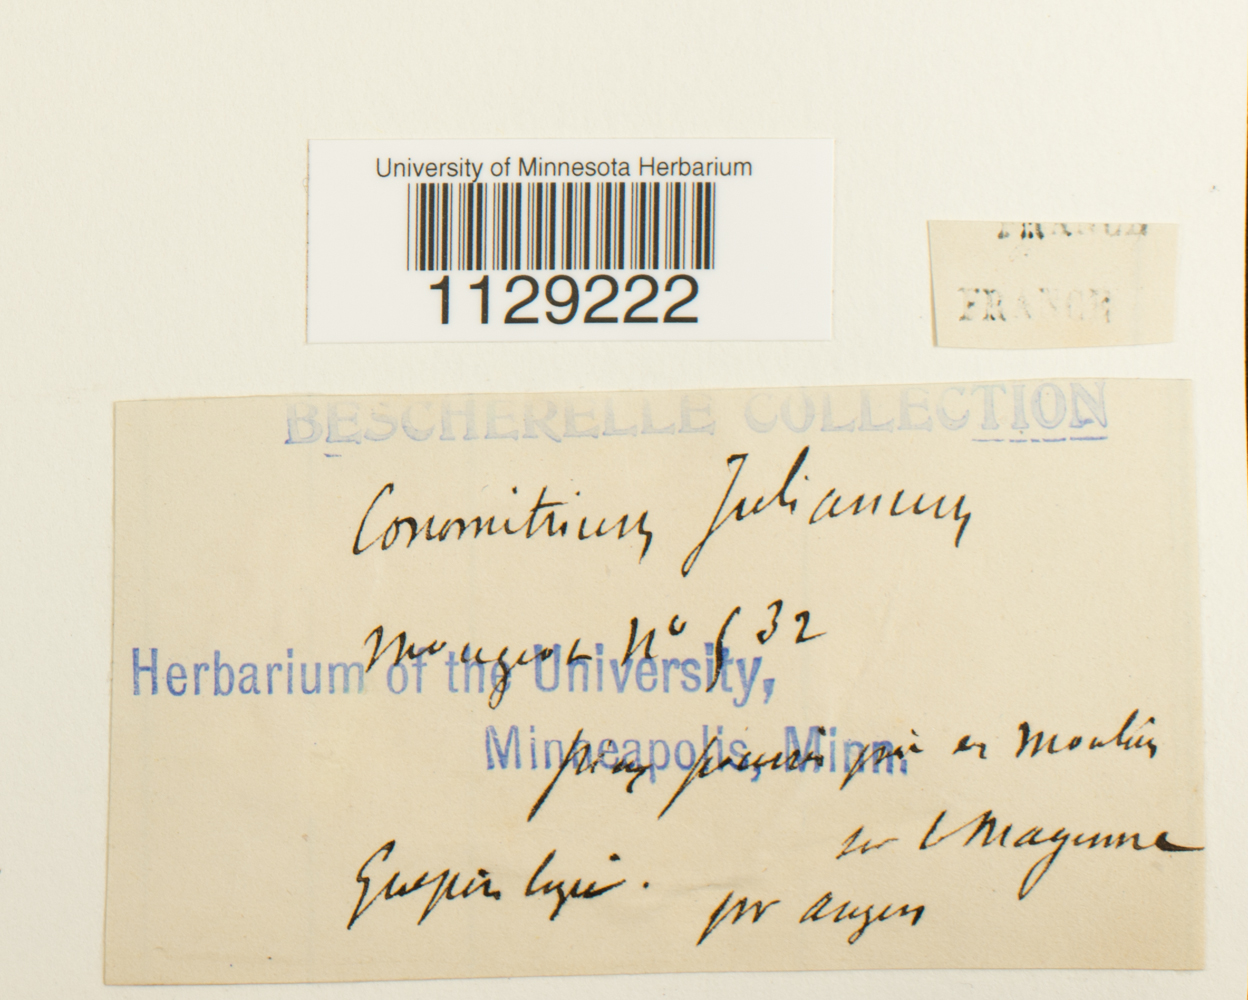 University of Minnesota Herbarium
1129222
FRANCE
FRANCE
BESCHERELLE COLLECTION
Conomitrium Julianum
Mougeot No 632
Herbarium of the University,
Minneapolis, Minn.
Moulin
sur l Mayenne
Guepin legit.
pr Angers